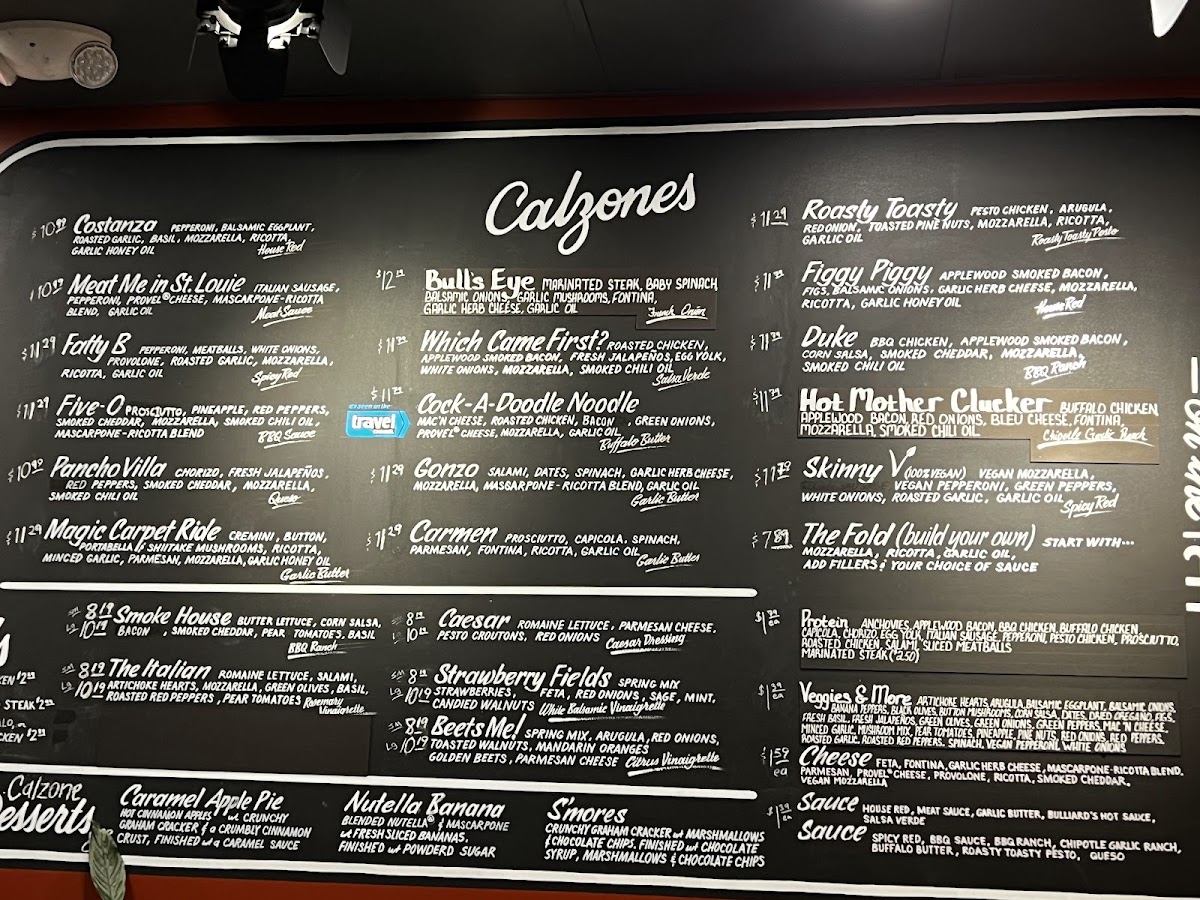 Calzones
$10.99 Costanza PEPPERONI, BALSAMIC EGGPLANT,
ROASTED GARLIC, BASIL, MOZZARELLA, RICOTTA,
GARLIC HONEY OIL House Red
Meat Me in St. Louie ITALIAN SAUSAGE,
PEPPERONI, PROVEL® CHEESE, MASCARPONE-RICOTTA
BLEND, GARLIC OIL Meat Sauce
$11.29 Fatty B PEPPERONI, MEATBALLS, WHITE ONIONS,
PROVOLONE, ROASTED GARLIC, MOZZARELLA,
RICOTTA, GARLIC OIL Spicy Red
$11.29 Five-O PROSCIUTTO, PINEAPPLE, RED PEPPERS,
SMOKED CHEDDAR, MOZZARELLA, SMOKED CHILI OIL,
MASCARPONE-RICOTTA BLEND BBQ Sauce
Pancho Villa CHORIZO, FRESH JALAPEÑOS,
RED PEPPERS, SMOKED CHEDDAR, MOZZARELLA,
SMOKED CHILI OIL Queso
$11.29 Magic Carpet Ride CREMINI, BUTTON,
PORTABELLA & SHIITAKE MUSHROOMS, RICOTTA,
MINCED GARLIC, PARMESAN, MOZZARELLA, GARLIC HONEY OIL
Garlic Butter
Bull's Eye MARINATED STEAK, BABY SPINACH
BALSAMIC ONIONS, GARLIC MUSHROOMS, FONTINA,
GARLIC HERB CHEESE, GARLIC OIL French Onion
Which Came First? ROASTED CHICKEN,
APPLEWOOD SMOKED BACON, FRESH JALAPEÑOS, EGG YOLK,
WHITE ONIONS, MOZZARELLA, SMOKED CHILI OIL
Salsa Verde
AS SEEN ON THE
travel
Cock-A-Doodle Noodle
MAC'N CHEESE, ROASTED CHICKEN, BACON , GREEN ONIONS,
PROVEL® CHEESE, MOZZARELLA, GARLIC OIL
Buffalo Butter
$11.29 Gonzo SALAMI, DATES, SPINACH, GARLIC HERB CHEESE,
MOZZARELLA, MASCARPONE-RICOTTA BLEND, GARLIC OIL
Garlic Butter
$11.29 Carmen PROSCIUTTO, CAPICOLA, SPINACH,
PARMESAN, FONTINA, RICOTTA, GARLIC OIL
Garlic Butter
$11.29 Roasty Toasty PESTO CHICKEN, ARUGULA,
RED ONION, TOASTED PINE NUTS, MOZZARELLA, RICOTTA,
GARLIC OIL Roasty Toasty Pesto
Figgy Piggy APPLEWOOD SMOKED BACON,
FIGS, BALSAMIC ONIONS, GARLIC HERB CHEESE, MOZZARELLA,
RICOTTA, GARLIC HONEY OIL House Red
Duke BBQ CHICKEN, APPLEWOOD SMOKED BACON,
CORN SALSA, SMOKED CHEDDAR, MOZZARELLA,
SMOKED CHILI OIL BBQ Ranch
Hot Mother Clucker BUFFALO CHICKEN,
APPLEWOOD BACON, RED ONIONS, BLEU CHEESE, FONTINA,
MOZZARELLA, SMOKED CHILI OIL Chipotle Garlic Ranch
Skinny V (100% VEGAN) VEGAN MOZZARELLA,
VEGAN PEPPERONI, GREEN PEPPERS,
WHITE ONIONS, ROASTED GARLIC, GARLIC OIL Spicy Red
$7.89 The Fold (build your own) START WITH...
MOZZARELLA, RICOTTA, GARLIC OIL,
ADD FILLERS & YOUR CHOICE OF SAUCE
SM 8.19 Smoke House BUTTER LETTUCE, CORN SALSA,
LG 10.19 BACON , SMOKED CHEDDAR, PEAR TOMATOES, BASIL
BBQ Ranch
SM 8.19 The Italian ROMAINE LETTUCE, SALAMI,
LG 10.19 ARTICHOKE HEARTS, MOZZARELLA, GREEN OLIVES, BASIL,
ROASTED RED PEPPERS, PEAR TOMATOES Rosemary
Vinaigrette
SM 8.19 Caesar ROMAINE LETTUCE, PARMESAN CHEESE,
LG 10.19 PESTO CROUTONS, RED ONIONS Caesar Dressing
SM 8.19 Strawberry Fields SPRING MIX
LG 10.19 STRAWBERRIES, FETA, RED ONIONS, SAGE, MINT,
CANDIED WALNUTS White Balsamic Vinaigrette
SM 8.19 Beets Me! SPRING MIX, ARUGULA, RED ONIONS,
LG 10.19 TOASTED WALNUTS, MANDARIN ORANGES
GOLDEN BEETS, PARMESAN CHEESE Citrus Vinaigrette
STEAK $2.99
Protein ANCHOVIES, APPLEWOOD BACON, BBQ CHICKEN, BUFFALO CHICKEN,
CAPICOLA, CHORIZO, EGG YOLK, ITALIAN SAUSAGE, PEPPERONI, PESTO CHICKEN, PROSCIUTTO,
ROASTED CHICKEN, SALAMI, SLICED MEATBALLS
MARINATED STEAK ($2.50)
Veggies & More ARTICHOKE HEARTS, ARUGULA, BALSAMIC EGGPLANT, BALSAMIC ONIONS,
BANANA PEPPERS, BLACK OLIVES, BUTTON MUSHROOMS, CORN SALSA, DATES, DRIED OREGANO, FIGS,
FRESH BASIL, FRESH JALAPEÑOS, GREEN OLIVES, GREEN ONIONS, GREEN PEPPERS, MAC 'N CHEESE,
MINCED GARLIC, MUSHROOM MIX, PEAR TOMATOES, PINEAPPLE, PINE NUTS, RED ONIONS, RED PEPPERS,
ROASTED GARLIC, ROASTED RED PEPPERS, SPINACH, VEGAN PEPPERONI, WHITE ONIONS
$1.59 ea Cheese FETA, FONTINA, GARLIC HERB CHEESE, MASCARPONE-RICOTTA BLEND,
PARMESAN, PROVEL® CHEESE, PROVOLONE, RICOTTA, SMOKED CHEDDAR,
VEGAN MOZZARELLA
Sauce HOUSE RED, MEAT SAUCE, GARLIC BUTTER, BULLIARD'S HOT SAUCE,
SALSA VERDE
Sauce SPICY RED, BBQ SAUCE, BBQ RANCH, CHIPOTLE GARLIC RANCH,
BUFFALO BUTTER, ROASTY TOASTY PESTO, QUESO
Calzone
Desserts
Caramel Apple Pie
HOT CINNAMON APPLES w/ CRUNCHY
GRAHAM CRACKER & a CRUMBLY CINNAMON
CRUST, FINISHED w/ a CARAMEL SAUCE
Nutella Banana
BLENDED NUTELLA® & MASCARPONE
w/ FRESH SLICED BANANAS.
FINISHED w/ POWDERD SUGAR
S'mores
CRUNCHY GRAHAM CRACKER w/ MARSHMALLOWS
& CHOCOLATE CHIPS. FINISHED w/ CHOCOLATE
SYRUP, MARSHMALLOWS & CHOCOLATE CHIPS